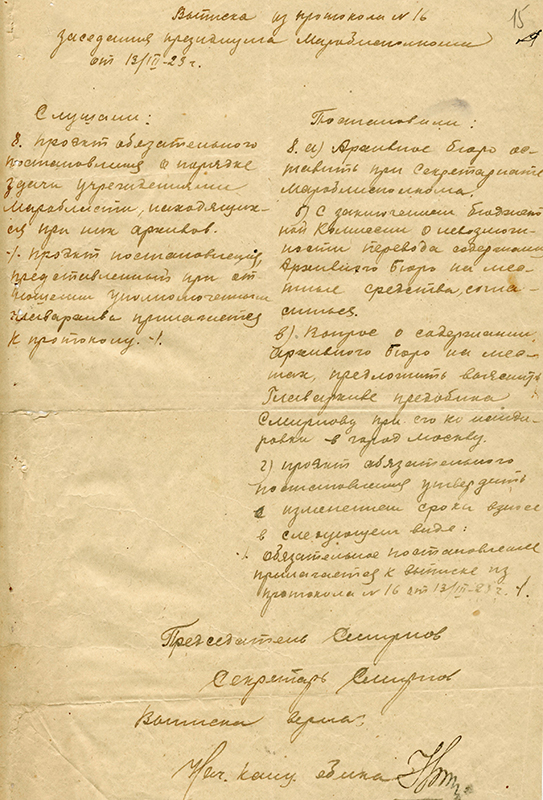 Выписка из протокола № 16
15
заседания президиума Мароблисполкома
от 13/III-23 г.
Слушали:
8. проект обязательного
постановления о порядке
здачи учреждениями
Маробласти, находящих-
ся при них архивов.
-/. проект постановления,
представленный при от
ношении Уполномоченного
Главархива прилагается
к протоколу. -/.
Постановили:
8. а) Архивное бюро ос-
тавить при Секретариате
Мароблисполкома.
б) С заключением Бюджет
ной Комиссии о невозмож-
ности перевода содержания
Архивного Бюро на мес-
тные средства, согла-
ситься.
в). Вопрос о содержании
Архивного бюро на мес-
тах, предложить выяснить
Главархиве предобика
Смирнову при его команди-
ровки в город Москву.
г) проект обязательного
постановления утвердить
с изменением срока
в следующем виде:
-/. обязательное постановление
прилагается к выписке из
протокола № 16 от 13/III-23 г. -/.
Председатель Смирнов
Секретарь Смирнов
Выписка верна:
Нач. канц. обика